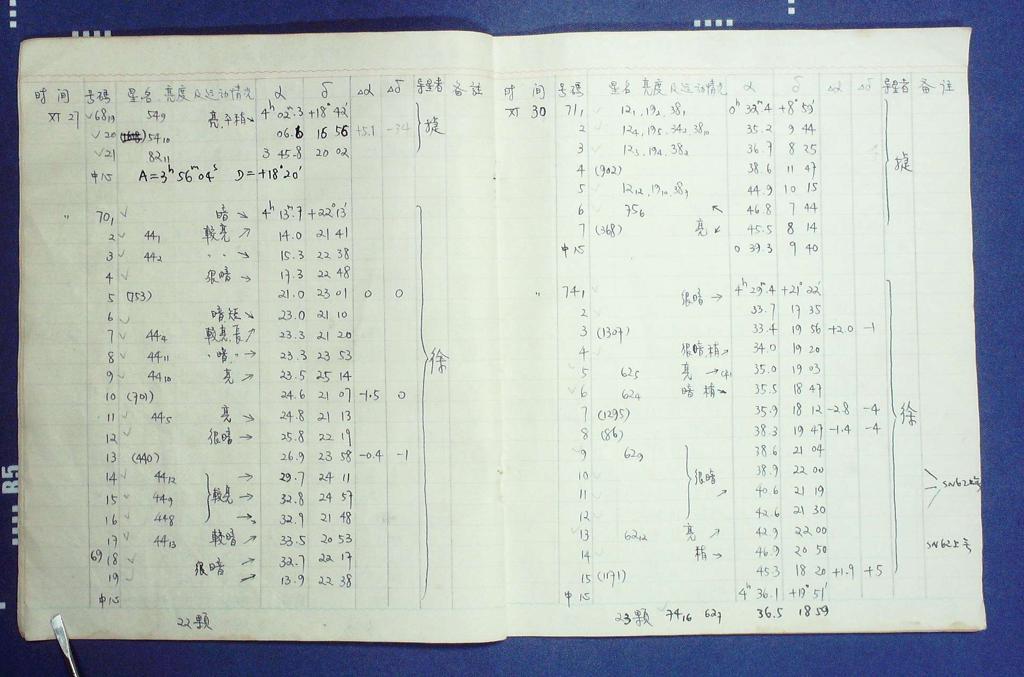 时间 号码 星名 亮度及运动情况 α δ Δα Δδ 导星者 备注
XI 27 √68₁₉ 54₉ 亮,子稍↘ 4ʰ02ᵐ.3 +18°42′
√20 54₁₀ 06.6 16 56 +5.1 -34
√21 82₁₁ 3 45.8 20 02
中心 A=3ʰ56ᵐ04ˢ D=+18°20′
" 70₁ √ 暗 ↘ 4ʰ13ᵐ.7 +22°13′
2 √ 44₁ 较亮 ↗ 14.0 21 41
3 √ 44₂ 〃 ↘ 15.3 22 38
4 √ 很暗 → 17.3 22 48
5 (753) 21.0 23 01 0 0
6 √ 暗短 ↘ 23.0 21 10
7 √ 44₄ 较亮长 ↗ 23.3 21 20
8 √ 44₁₁ 〃暗〃 → 23.3 23 53
9 √ 44₁₀ 亮 → 23.5 25 14
10 (701) 24.6 21 07 -1.5 0
11 √ 44₅ 亮 → 24.8 21 13
12 √ 很暗 → 25.8 22 19
13 (440) 26.9 23 58 -0.4 -1
14 √ 44₁₂ → 29.7 24 11
15 √ 44₉ 较亮 → 32.8 24 57
16 √ 44₈ → 32.9 21 48
17 √ 44₁₃ 较暗 ↗ 33.5 20 53
69 18 √ 很暗 → 32.7 22 17
19 √ ↗ 13.9 22 38
中心
徐
22颗
时间 号码 星名 亮度及运动情况 α δ Δα Δδ 导星者 备注
XI 30 71₁ 12₁,19₂,38₁ 0ʰ32ᵐ.4 +8°59′
2 12₄,19₅,34₂,38₁₀ 35.2 9 44
3 12₃,19₄,38₂ 36.7 8 25
4 (902) 38.6 11 47
5 12₁₂,19₁₀,38₉ 44.9 10 15
6 75₆ ↖ 46.8 7 44
7 (368) 亮 ↙ 45.5 8 14
中心 0 39.3 9 40
" 74₁ 很暗 → 4ʰ29ᵐ.4 +21°22′
2 33.7 17 35
3 (1307) 33.4 19 56 +2.0 -1
4 很暗稍↗ 34.0 19 20
5 62₅ 亮 → 35.0 19 03
6 62₄ 暗 稍↘ 35.5 18 47
7 (1295) 35.9 18 12 -2.8 -4
8 (86) 38.3 19 47 -1.4 -4
9 62₉ 38.6 21 04
10 很暗 38.9 22 00
11 ↗ 40.6 21 19
12 42.6 21 30
13 62₁₂ 亮 ↗ 42.9 22 00
14 稍 → 46.9 20 50
15 (1171) 45.3 18 20 +1.9 +5
中心 4ʰ36.1 +19°51′
徐
23颗 74₁₆ 62₇ 36.5 18 59